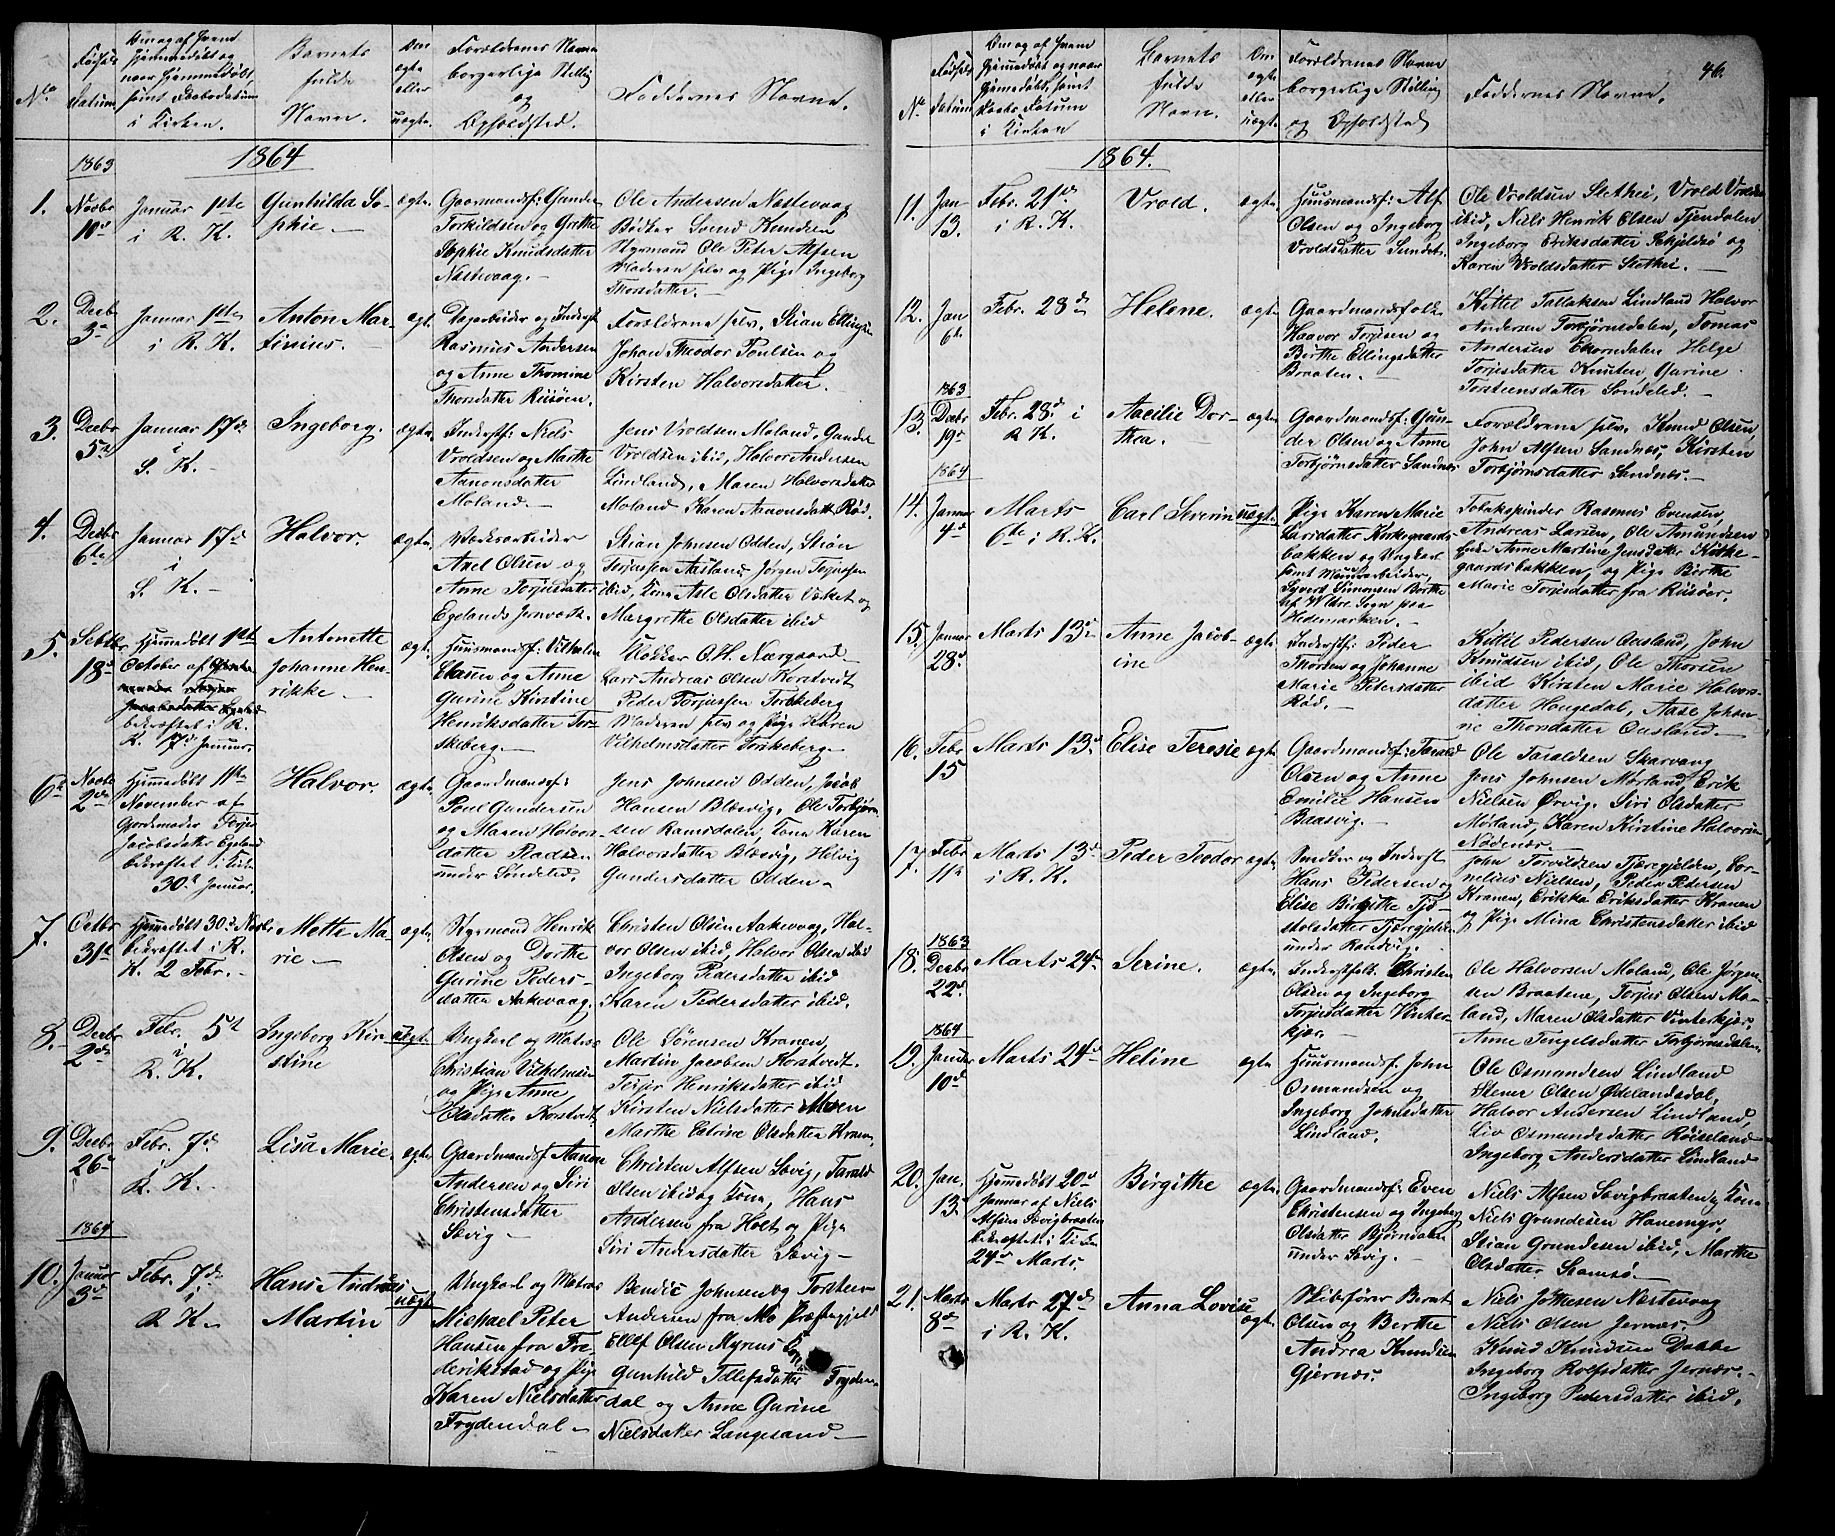 No
Fødsels
Datum
Om og af hvem
hjemmedøbt og
naar hjemmedøbt,
samt Daabsdatum
i Kirken.
Barnets
fulde
Navn.
Om
ægte
eller
uægte.
Forældrenes Navne
borgerlige Stilling
og
Opholdsted.
Faddernes Navne.
1863
1864
1.
Novbr
10d
Januar 1ste
i R. K.
Gunhilda So-
phie.
ægte
Gaarmandsf: Gunder
Torkildsen og Grethe
Sophie Knudsdatter
Næstevaag.
Ole Andersen Næstevaag
Bødker Svend Knudsen
Styrmand Ole Peter Alfsen
Moderen selv og Pige Ingeborg
Thorsdatter.
2.
Decbr
3d
Januar 1ste
i R. K.
Anton Mar-
tinius.
ægte
Dagarbeider og Inderst
Rasmus Andersen
og Anne Thomine
Thorsdatter Risøen.
Forældrene selv, Stian Ellingsen
Johan Theodor Poulsen og
Kirsten Halvorsdatter.
3.
Decbr
5te
Januar 17d
i
S. K.
Ingeborg.
ægte
Inderstf: Niels
Vroldsen og Marthe
Aanonsdatter
Moland.
Jens Vroldsen Moland, Gunder
Vroldsen ibid, Halvor Andersen
Lindland, Maren Halvorsdatter
Moland Karen Aanonsdatt. Rød.
4.
Decbr
6te
Januar 17d
i
S. K.
Halvor.
ægte
Værksarbeider
Axel Olsen og
Anne Torjusdatter
Egelands Jernværk.
Stian Johnsen Odden, Stian
Torjussen Aasland, Jørgen Torjussen
ibid, Kone Asle Olsdatter Værket og
Margrethe Olsdatter ibid
5.
Septbr
18d
Hjemmedøbt 1ste
October af
bekræftet i R.
K. 17d Januar.
Antonette
Johanne Hen-
rikke
ægte
Huusmandsf: Vilhelm
Clausen og Anne
Gurine Kirstine
Henriksdatter Tor-
skeberg.
Klokker O. H. Nærgaard
Lars Andreas Olsen Korstvedt
Peder Torjussen Torskeberg
Moderen selv og Pige Karen
Vilhelmsdatter Torskeberg.
6te
Novbr
2den
Hjemmedøbt 11te
November af
Gjordemoder Torjer
Jacobsdatter Egeland
bekræftet i Kirk.
30te Januar.
Halvor.
ægte
Gaardmandsf:
Poul Gundersen
og Maren Halvors-
datter Pladsen
under Søndeled.
Jens Johnsen Odden, Jacob
Hansen Blæsvig, Ole Torbjørn-
sen Ramsdalen, Kone Karen
Halvorsdatter Blæsvig, Helvig
Gundersdatter Odden
7.
Octbr
31te
Hjemmedøbt 30te Novbr
bekræftet i R.
K. 2 Febr.
Mette Ma-
rie
ægte
Styrmand Henrik
Olsen og Dorthe
Gurine Peders-
datter Aakevaag.
Christen Olsen Aakevaag, Hal-
vor Olsen ibid, Halvor Olsen ibid
Ingeborg Pedersdatter ibid
Karen Pedersdatter ibid.
8.
Decbr
2den
Febr. 5te
i
R. K.
Ingeborg Kir-
stine
uægte
Ungkarl og Matros
Christian Vilhelmsen
og Pige Anne
Elsdatter Korstvedt.
Ole Sørensen Kranen,
Martin Jacobsen Korstvedt.
Torjer Henriksdatter ibid
Kirsten Nielsdatter Moen
Marthe Catrine Olsdatter Kranen.
9.
Decbr
26d
Febr. 7d
i
R. K.
Lisa Marie
ægte
Gaardmandsf: Aanon
Andersen og Siri
Christensdatter
Sævig
Christen Alfsen Sævig, Tarald
Olsen ibid og Kone, Hans
Andersen fra Holt og Pige
Siri Andersdatter Sævig
1864
10.
Januar
3d
Febr. 7d
i
R. K.
Hans Andreas
Martin
uægte
Ungkarl og Matros
Michael Peter
Hansen fra Fre-
derikstad og Pige
Karen Nielsdatter
Frydendal
Bendic Johnsen og Torsten
Andersen fra Mo Præstegjeld
Ellef Olsen Myrens Kone
Gunhild Tellefsdatter Fryden-
dal og Anne Gurine
Nielsdatter Langesand
46.
No.
Fødsels
Datum
Om og af hvem
hjemmedøbt og naar
hjemmedøbt, samt
Daabs Datum
i Kirken
Barnets
fulde
Navn.
Om
ægte
eller
uægte
Forældrenes Navne
borgerlige Stilling
og Opholdsted
Faddernes Navne.
1864.
11.
Jan
13.
Febr. 21de
i R. K.
Vrold.
ægte
Huusmandsf: Alf
Olsen og Ingeborg
Vroldsdatter Sundet.
Ole Vroldsen Slethei, Vrold Vroldsen
ibid, Niels Henrik Olsen Tjendalen
Ingeborg Eriksdatter Skjeldsø og
Karen Vroldsdatter Slethei.
12.
Jan
6te
Febr. 28de
Helene.
ægte
Gaardmandsfolk
Haavor Torjusen og
Birthe Ellingsdatter
Braaten.
Kittil Tallaksen Lindland Halvor
Andersen Torbjørnsdalen, Tomas
Andersen Ekorndalen Helge
Torjusdatter Knuten Gurine
Torsteensdatter Søndeled.
1863
13.
Decbr
19d
Febr. 28d i
R K.
Aacilie Dor-
thea.
ægte
Gaardmandsf: Gun-
der Olsen og Anne
Torbjørnsdatter Sandnes
Forældrene selv. Knud Olsen,
John Alfsen Sandnes, Kirsten
Torbjørnsdatter Sandnæs.
1864
14.
Januar
4d
Marts
6te i R. K.
Carl Severin
uægte.
Pige Karen Marie
Larsdatter Kirkegaards-
bakken og Ungkarl
samt Muurarbeider
Syvert Simonsen Berthe
af Vldre Sogn paa
Hedemarken.
Tobakspinder Rasmus Evensen,
Andreas Larsen, Ole Amundsen
Anne Martine Jensdatter Kirke-
gaardsbakken, og Pige Birthe
Marie Torjesdatter fra Risøer.
15.
Januar
28d
Marts 13d
Anne Jacob-
ine
ægte
Inderstf: Peder
Thorsen og Johanne
Marie Petersdatter
Rød.
Kittil Pedersen Aasland, John
Knudsen ibid, Ole Thorsen
ibid Kirsten Marie Halvors-
datter Haugedal, Aase Johan-
ne Thorsdatter Aasland.
16.
Febr
15
Marts 13d
Elise Teresie
ægte
Gaardmandsf: Tarald
Olsen og Anne
Emilie Hansen
Braasvig.
Ole Taraldsen Skarvang
Jens Johnsen Mørland, Erik
Nielsen Ørvig. Siri Olsdatter
Mørland, Karen Kirstine Halvorsen
Nødenæs.
17.
Febr
11te
Marts 13d
i R. K.
Peder Teodor
ægte
Snedker og Inderst
Hans Pedersen og
Elise Birgithe Tjø-
stolsdatter Tjæregjelen
under Randvig.
John Torvildsen Tjæregjelden, Cor-
nelius Nielsen, Peder Pedersen
Kranen, Erikka Eriksdatter Kranen
og Pige Mina Christensdatter ibid
1863
18.
Decbr
22d
Marts 24de
Serine.
ægte
Inderstfolk Christen
Olsen og Ingeborg
Torjusdatter Vinter-
kjær.
Ole Halvorsen Moland, Ole Jørgen-
sen Braatene, Torjus Olsen Mo-
land, Maren Olsdatter Vinterkjær,
Anne Tengelsdatter Torbjørnsdalen
1864
19.
Januar
10d
Marts 24d
Heline
ægte
Huusmandsf. John
Osmundsen og
Ingeborg Johnsdatter
Lindland.
Ole Osmundsen Lindland
Stener Olsen Ødelandsdal,
Halvor Andersen Lindland,
Liv Osmundsdatter Røiseland
Ingeborg Andersdatter Lindland
20.
Jan.
13.
Hjemmedøbt 20d
Januar af Niels
Alfsen Sævigbraaten
bekræftet i Kirken
24d Marts.
Birgithe
ægte
Gaardmandsf: Even
Christensen og Ingeborg
Olsdatter Bjørndalen
under Sævig.
Niels Alfsen Sævigbraaten og Kone
Niels Grundesen Hanemyr,
Stian Grundesen ibid, Marthe
Olsdatter Stamsø.
21.
Marts
8de
Marts 27de
i R. K.
Anna Lovise
ægte.
Skibsfører Bernt
Olsen og Berthe
Andrea Knudsen
Gjernæs.
Niels Jøttesen Næstevaag
Niels Olsen Jernæs.
Knud Knudsen Dobbe
Ingeborg Rolfsdatter Jernæs.
Ingeborg Pedersdatter ibid.